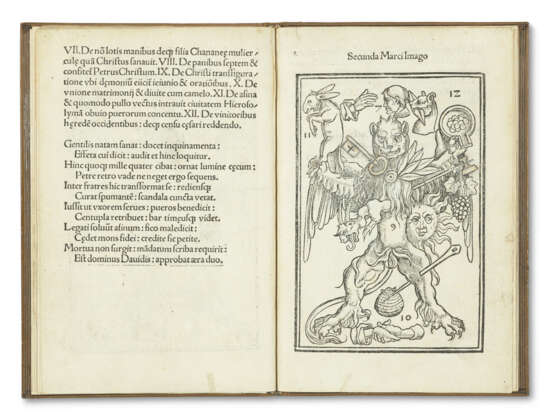 VII. De nō lotis manibus deq̨ filia Chananeę mulier⸗
culę quā Christus sanauit. VIII. De panibus septem &
confitef Petrus Christum. IX. De Christi transfigura⸗
tione vbi dęmoniū eiicit ieiunio & oratiōibus. X. De
vnione matrimonij & diuite cum camelo. XI. De asina
& quomodo pullo vectus intrauit ciuitatem Hieroso⸗
lymā obuio puerorum concentu. XII. De vinitoribus
hęredē occidentibus: deq̨ censu cęsari reddendo.
Gentilis natam sanat: docet inquinamenta:
Effeta cui dicit: audit et hinc loquitur.
Hinc quoq̨ mille quater cibat: ornat lumine ęcum:
Petre retro vade ne neget ergo sequens.
Inter fratres hic transformat se: rediensq̨
Curat spumantē: scandala cuncta vetat.
Iussit ut vxorem serues: pueros benedicit:
Centupla retribuet: bar timęusq̨ videt.
Legati soluūt asinum: fico maledicit:
Cędet mons fidei: credite sic petite.
Mortua non surgit: mādatum scriba requirit:
Est dominus Dauidis: approbat æra duo.
Secunda Marci Imago
12
11
9
10